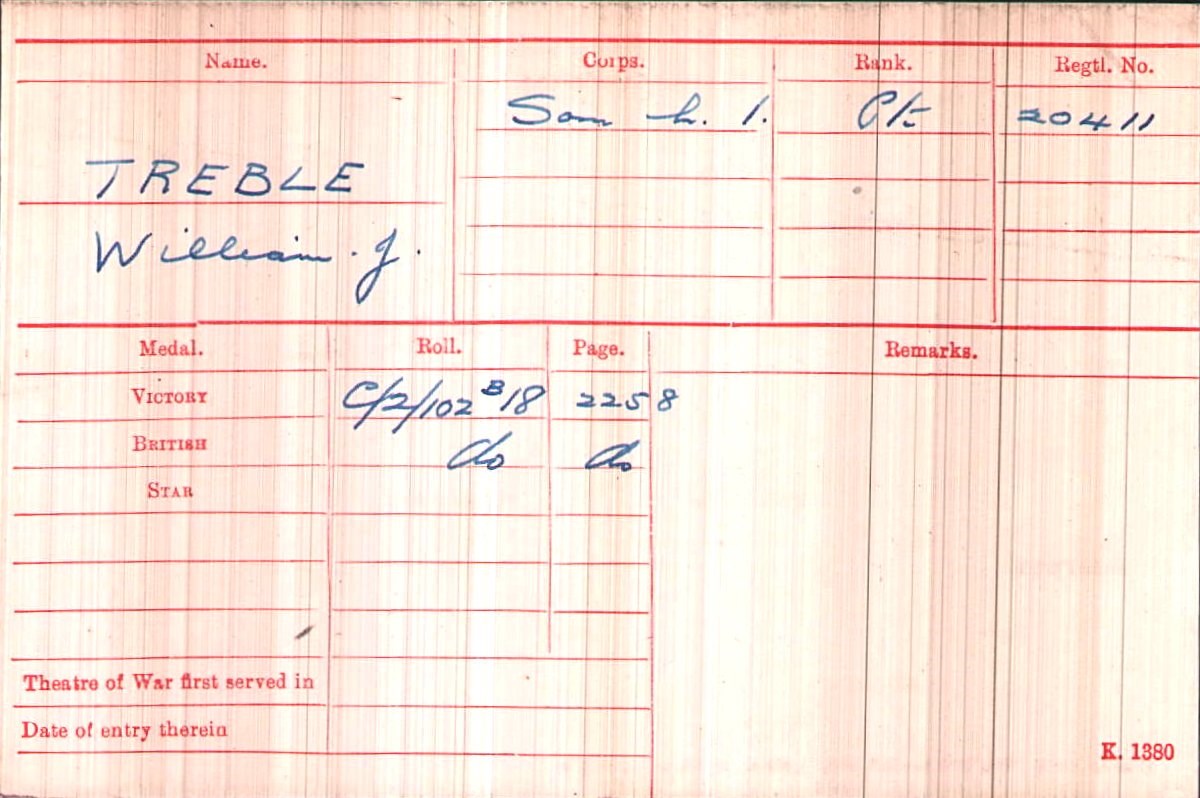 Name. Corps. Rank. Regtl. No.
Som L. I. Pte 20411
TREBLE
William. J.
Medal. Roll. Page. Remarks.
VICTORY C/2/102 B18 2258
BRITISH do do
STAR
Theatre of War first served in
Date of entry therein
K. 1380